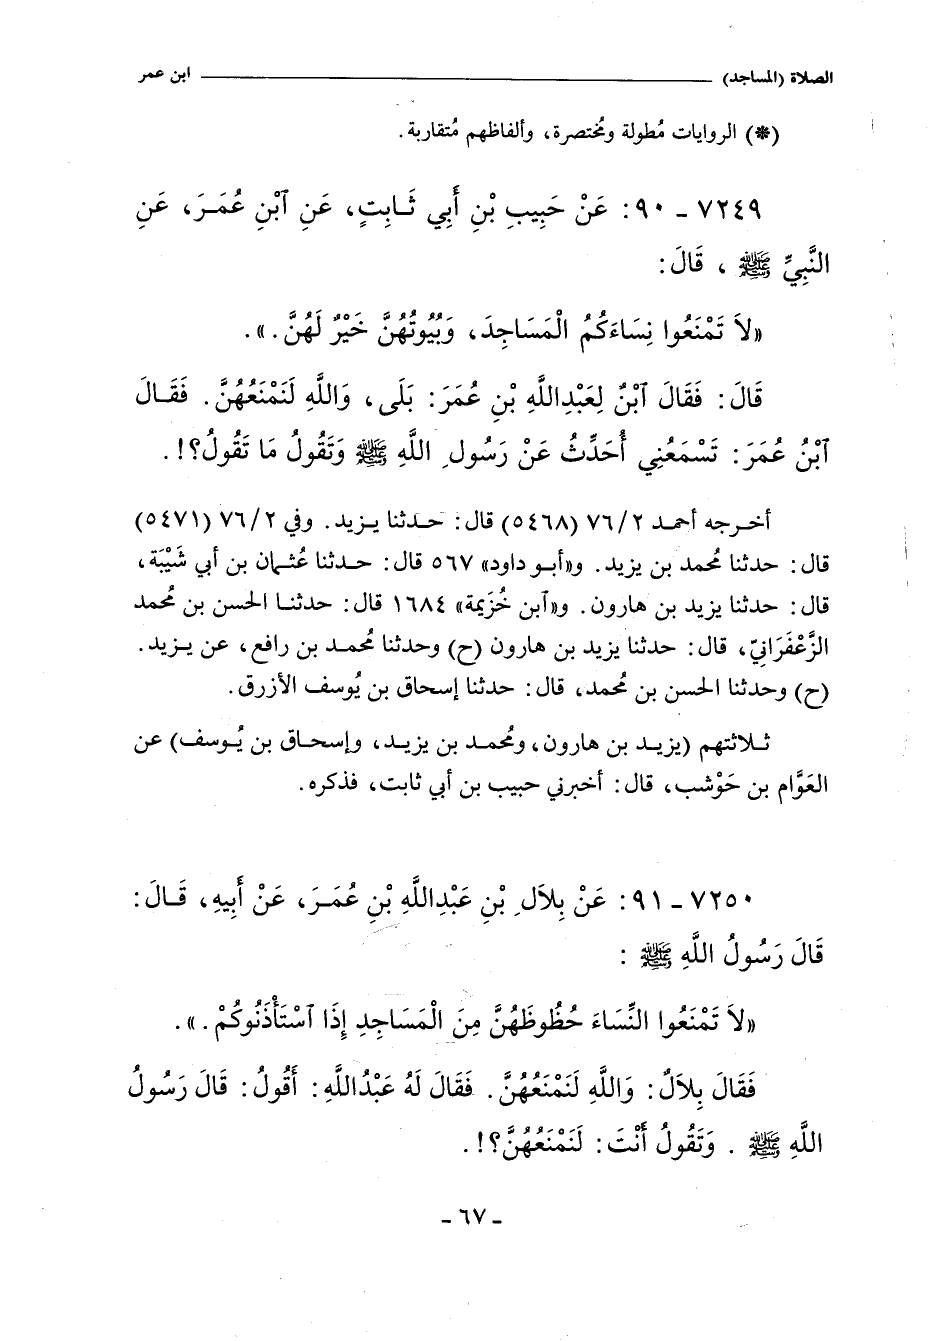 الصلاة (المساجد) ابن عمر
(*) الروايات مُطولة ومُختصرة، وألفاظهم مُتقاربة.
٧٢٤٩ - ٩٠: عَنْ حَبِيبِ بْنِ أَبِي ثَابِتٍ، عَنِ ٱبْنِ عُمَرَ، عَنِ
النَّبِيِّ ﷺ ، قَالَ:
«لاَ تَمْنَعُوا نِسَاءَكُمُ الْمَسَاجِدَ، وَبُيُوتُهُنَّ خَيْرٌ لَهُنَّ.».
قَالَ: فَقَالَ ٱبْنٌ لِعَبْدِاللَّهِ بْنِ عُمَرَ: بَلَى، وَاللَّهِ لَنَمْنَعُهُنَّ. فَقَالَ
ٱبْنُ عُمَرَ: تَسْمَعُنِي أُحَدِّثُ عَنْ رَسُولِ اللَّهِ ﷺ وَتَقُولُ مَا تَقُولُ؟!.
أخرجه أحمد ٢/ ٧٦ (٥٤٦٨) قال: حدثنا يزيد. وفي ٢/ ٧٦ (٥٤٧١)
قال: حدثنا مُحمد بن يزيد. و«أبو داود» ٥٦٧ قال: حدثنا عُثمان بن أبي شَيْبَة،
قال: حدثنا يزيد بن هارون. و«ٱبن خُزَيمة» ١٦٨٤ قال: حدثنا الحسن بن مُحمد
الزَّعْفَرَانيّ، قال: حدثنا يزيد بن هارون (ح) وحدثنا مُحمد بن رافع، عن يزيد.
(ح) وحدثنا الحسن بن مُحمد، قال: حدثنا إسحاق بن يُوسف الأزرق.
ثلاثتهم (يزيد بن هارون، ومُحمد بن يزيد، وإسحاق بن يُوسف) عن
العَوَّام بن حَوْشب، قال: أخبرني حبيب بن أبي ثابت، فذكره.
٧٢٥٠ - ٩١: عَنْ بِلاَلِ بْنِ عَبْدِاللَّهِ بْنِ عُمَرَ، عَنْ أَبِيهِ، قَالَ:
قَالَ رَسُولُ اللَّهِ ﷺ :
«لاَ تَمْنَعُوا النِّسَاءَ حُظُوظَهُنَّ مِنَ الْمَسَاجِدِ إِذَا ٱسْتَأْذَنُوكُمْ.».
فَقَالَ بِلاَلٌ: وَاللَّهِ لَنَمْنَعُهُنَّ. فَقَالَ لَهُ عَبْدُاللَّهِ: أَقُولُ: قَالَ رَسُولُ
اللَّهِ ﷺ . وَتَقُولُ أَنْتَ: لَنَمْنَعُهُنَّ؟!.
- ٦٧ -